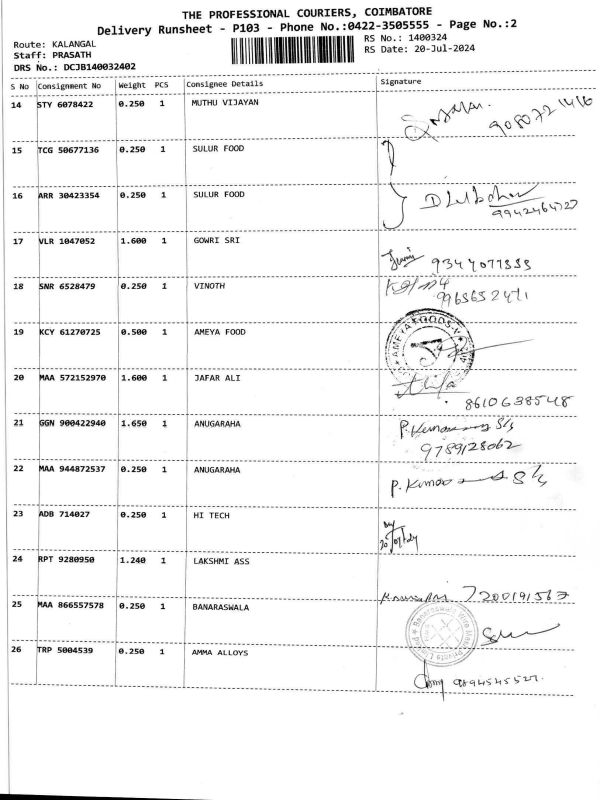 THE PROFESSIONAL COURIERS, COIMBATORE
Delivery Runsheet - P103 - Phone No.:0422-3505555 - Page No.:2
Route: KALANGAL
Staff: PRASATH
DRS No.: DCJB140032402
RS No.: 1400324
RS Date: 20-Jul-2024
S No Consignment No Weight PCS Consignee Details Signature
14 STY 6078422 0.250 1 MUTHU VIJAYAN
9080721416
15 TCG 50677136 0.250 1 SULUR FOOD
16 ARR 30423354 0.250 1 SULUR FOOD
9942464727
17 VLR 1047052 1.600 1 GOWRI SRI
9344077333
18 SNR 6528479 0.250 1 VINOTH
9965652471
19 KCY 61270725 0.500 1 AMEYA FOOD
AMEYA FOODS
20 MAA 572152970 1.600 1 JAFAR ALI
8610638548
21 GGN 900422940 1.650 1 ANUGARAHA
9789128062
22 MAA 944872537 0.250 1 ANUGARAHA
23 ADB 714027 0.250 1 HI TECH
24 RPT 9280950 1.240 1 LAKSHMI ASS
7200191563
25 MAA 866557578 0.250 1 BANARASWALA
26 TRP 5004539 0.250 1 AMMA ALLOYS
9894545527